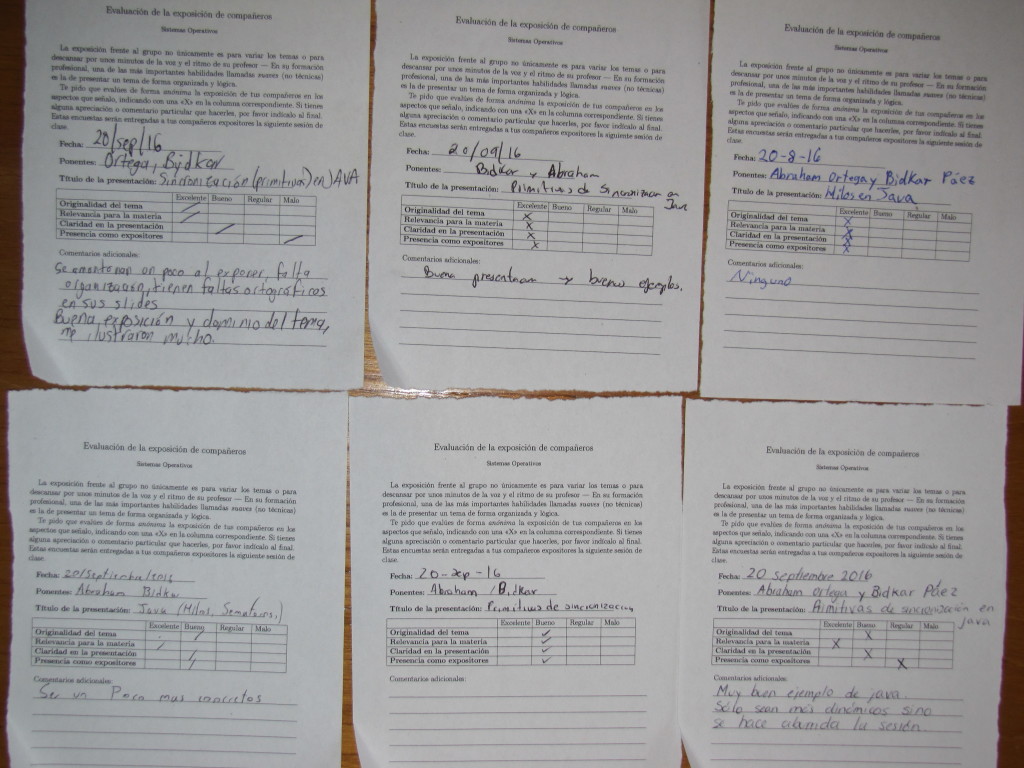 Evaluación de la exposición de compañeros
Sistemas Operativos
La exposición frente al grupo no únicamente es para variar los temas o para
descansar por unos minutos de la voz y el ritmo de su profesor — En su formación
profesional, una de las más importantes habilidades llamadas suaves (no técnicas)
es la de presentar un tema de forma organizada y lógica.
Te pido que evalúes de forma anónima la exposición de tus compañeros en los
aspectos que señalo, indicando con una «X» en la columna correspondiente. Si tienes
alguna apreciación o comentario particular que hacerles, por favor indícalo al final.
Estas encuestas serán entregadas a tus compañeros expositores la siguiente sesión de
clase.
Fecha: 20/sep/16
Ponentes: Ortega, Bidkar
Título de la presentación: Sincronización (primitivas) en JAVA
Excelente Bueno Regular Malo
Originalidad del tema
Relevancia para la materia
Claridad en la presentación
Presencia como expositores
Comentarios adicionales:
Se amontonan un poco al exponer, falta
organización, tienen faltas ortográficas
en sus slides
Buena exposición y dominio del tema,
me ilustraron mucho.
Evaluación de la exposición de compañeros
Sistemas Operativos
La exposición frente al grupo no únicamente es para variar los temas o para
descansar por unos minutos de la voz y el ritmo de su profesor — En su formación
profesional, una de las más importantes habilidades llamadas suaves (no técnicas)
es la de presentar un tema de forma organizada y lógica.
Te pido que evalúes de forma anónima la exposición de tus compañeros en los
aspectos que señalo, indicando con una «X» en la columna correspondiente. Si tienes
alguna apreciación o comentario particular que hacerles, por favor indícalo al final.
Estas encuestas serán entregadas a tus compañeros expositores la siguiente sesión de
clase.
Fecha: 20/09/16
Ponentes: Bidkar y Abraham
Título de la presentación: Primitivas de sincronizacion en
Java
Excelente Bueno Regular Malo
Originalidad del tema X
Relevancia para la materia X
Claridad en la presentación X
Presencia como expositores X
Comentarios adicionales:
Buena presentacion y buenos ejemplos.
Evaluación de la exposición de compañeros
Sistemas Operativos
La exposición frente al grupo no únicamente es para variar los temas o para
descansar por unos minutos de la voz y el ritmo de su profesor — En su formación
profesional, una de las más importantes habilidades llamadas suaves (no técnicas)
es la de presentar un tema de forma organizada y lógica.
Te pido que evalúes de forma anónima la exposición de tus compañeros en los
aspectos que señalo, indicando con una «X» en la columna correspondiente. Si tienes
alguna apreciación o comentario particular que hacerles, por favor indícalo al final.
Estas encuestas serán entregadas a tus compañeros expositores la siguiente sesión de
clase.
Fecha: 20-8-16
Ponentes: Abraham Ortega y Bidkar Páez
Título de la presentación: Hilos en Java
Excelente Bueno Regular Malo
Originalidad del tema X
Relevancia para la materia X
Claridad en la presentación X
Presencia como expositores X
Comentarios adicionales:
Ninguno
Evaluación de la exposición de compañeros
Sistemas Operativos
La exposición frente al grupo no únicamente es para variar los temas o para
descansar por unos minutos de la voz y el ritmo de su profesor — En su formación
profesional, una de las más importantes habilidades llamadas suaves (no técnicas)
es la de presentar un tema de forma organizada y lógica.
Te pido que evalúes de forma anónima la exposición de tus compañeros en los
aspectos que señalo, indicando con una «X» en la columna correspondiente. Si tienes
alguna apreciación o comentario particular que hacerles, por favor indícalo al final.
Estas encuestas serán entregadas a tus compañeros expositores la siguiente sesión de
clase.
Fecha: 20/septiembre/2016
Ponentes: Abraham Bidkar
Título de la presentación: Java (Hilos, Semaforos,)
Excelente Bueno Regular Malo
Originalidad del tema
Relevancia para la materia
Claridad en la presentación
Presencia como expositores
Comentarios adicionales:
Ser un Poco mas concretos
Evaluación de la exposición de compañeros
Sistemas Operativos
La exposición frente al grupo no únicamente es para variar los temas o para
descansar por unos minutos de la voz y el ritmo de su profesor — En su formación
profesional, una de las más importantes habilidades llamadas suaves (no técnicas)
es la de presentar un tema de forma organizada y lógica.
Te pido que evalúes de forma anónima la exposición de tus compañeros en los
aspectos que señalo, indicando con una «X» en la columna correspondiente. Si tienes
alguna apreciación o comentario particular que hacerles, por favor indícalo al final.
Estas encuestas serán entregadas a tus compañeros expositores la siguiente sesión de
clase.
Fecha: 20-sep-16
Ponentes: Abraham / Bidkar
Título de la presentación: Primitivas de sincronización
Excelente Bueno Regular Malo
Originalidad del tema ✓
Relevancia para la materia ✓
Claridad en la presentación ✓
Presencia como expositores ✓
Comentarios adicionales:
Evaluación de la exposición de compañeros
Sistemas Operativos
La exposición frente al grupo no únicamente es para variar los temas o para
descansar por unos minutos de la voz y el ritmo de su profesor — En su formación
profesional, una de las más importantes habilidades llamadas suaves (no técnicas)
es la de presentar un tema de forma organizada y lógica.
Te pido que evalúes de forma anónima la exposición de tus compañeros en los
aspectos que señalo, indicando con una «X» en la columna correspondiente. Si tienes
alguna apreciación o comentario particular que hacerles, por favor indícalo al final.
Estas encuestas serán entregadas a tus compañeros expositores la siguiente sesión de
clase.
Fecha: 20 septiembre 2016
Ponentes: Abraham Ortega y Bidkar Páez
Título de la presentación: Primitivas de sincronización en
java
Excelente Bueno Regular Malo
Originalidad del tema X
Relevancia para la materia X
Claridad en la presentación X
Presencia como expositores X
Comentarios adicionales:
Muy buen ejemplo de java.
Sólo sean más dinámicos sino
se hace aburrida la sesión.